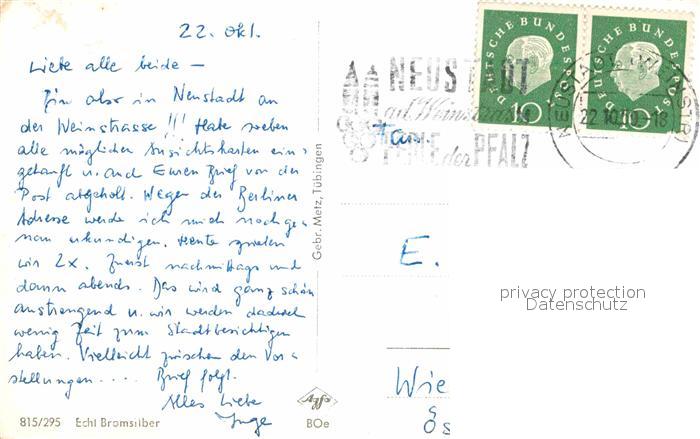 22. Okt.
Liebe alle beide –
Bin also in Neustadt an
der Weinstrasse!!! Habe soeben
alle möglichen Ansichtskarten ein-
gekauft u. auch Euren Brief von der
Post abgeholt. Wegen der Berliner
Adresse werde ich mich noch ge-
nau erkundigen. Heute spielen
wir 2x. Zuerst nachmittags und
dann abends. Das wird ganz schön
anstrengend u. wir werden dadurch
wenig Zeit zum Stadtbesichtigen
haben. Vielleicht zwischen den Vor-
stellungen.... Brief folgt.
Alles Liebe
Inge
815/295 Echt Bromsilber
Agfa
BOe
Gebr. Metz, Tübingen
NEUSTADT
a.d. Weinstrasse
PERLE der PFALZ
DEUTSCHE BUNDESPOST
10
DEUTSCHE BUNDESPOST
10
NEUSTADT (WEINSTR)
22.10.60-18
Fam.
E.
Wie
Ös
privacy protection
Datenschutz